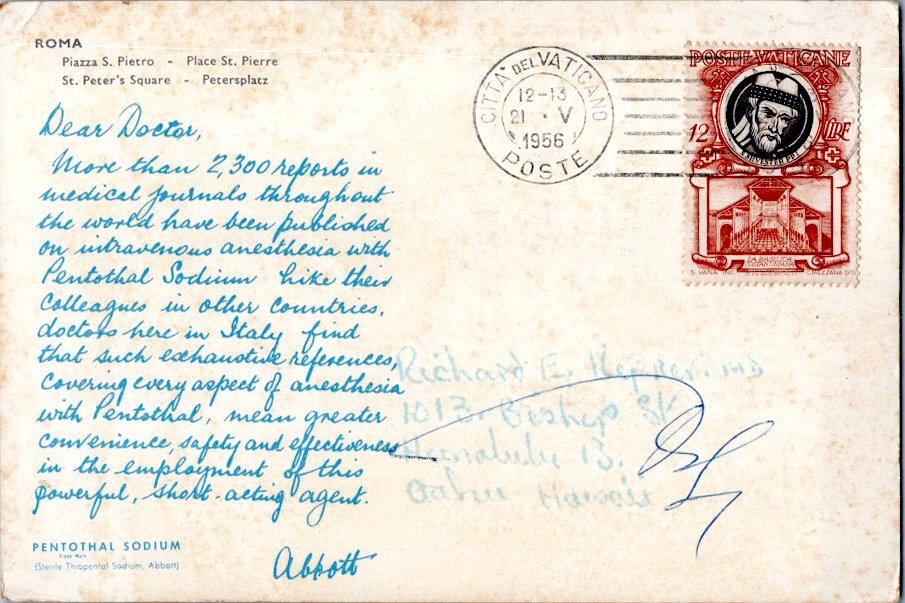 ROMA
Piazza S. Pietro - Place St. Pierre
St. Peter's Square - Petersplatz
CITTÀ DEL VATICANO
12-13
21 · V
1956
POSTE
POSTE VATICANE
12 LIRE
SILVESTER PP
LA BASILICA
COSTANTINIANA
S. VANA INC.
MEZZANA DIS.
Dear Doctor,
More than 2,300 reports in
medical journals throughout
the world have been published
on intravenous anesthesia with
Pentothal Sodium Like their
colleagues in other countries,
doctors here in Italy find
that such exhaustive references,
covering every aspect of anesthesia
with Pentothal, mean greater
convenience, safety and effectiveness
in the employment of this
powerful, short-acting agent.
Abbott
Richard E. MD
1013 Bishop St
Honolulu 13.
Oahu Hawaii
PENTOTHAL SODIUM
Trade Mark
(Sterile Thiopental Sodium, Abbott)